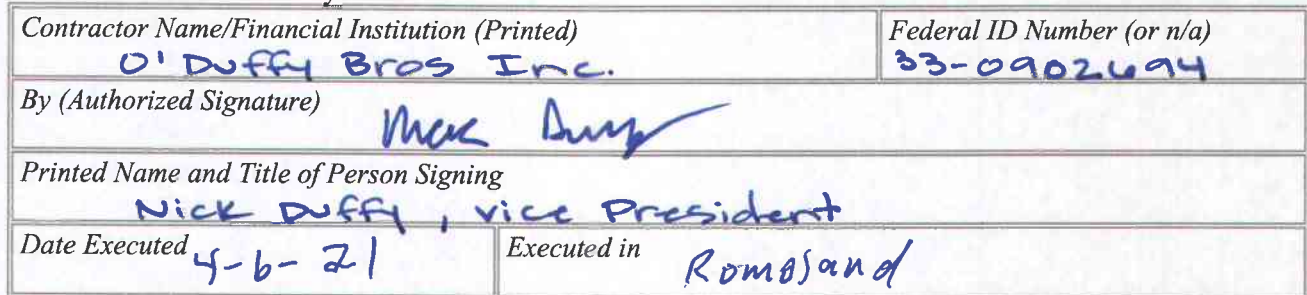 Contractor Name/Financial Institution (Printed) Federal ID Number (or n/a)
O'Duffy Bros Inc. 33-0902694
By (Authorized Signature)
Printed Name and Title of Person Signing
Nick Duffy, vice President
Date Executed 4-6-21 Executed in Romoland